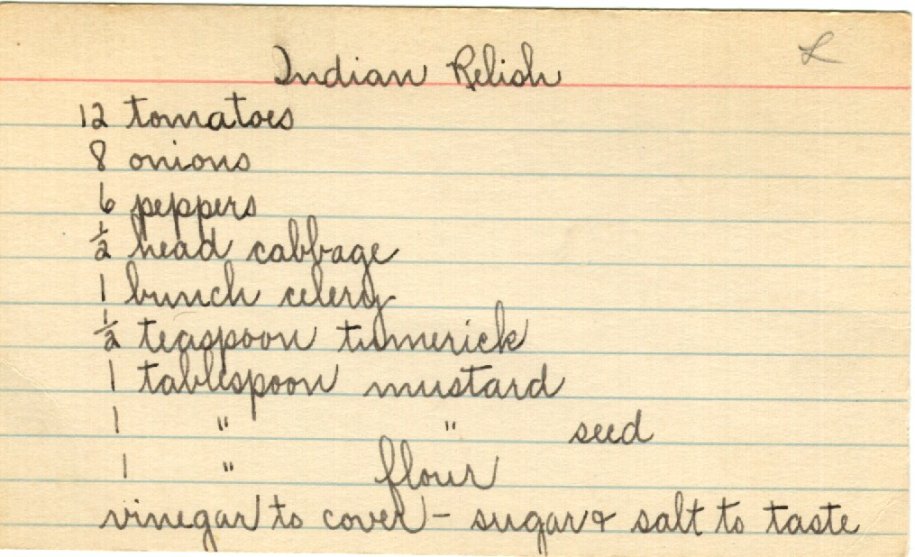 Indian Relish
12 tomatoes
8 onions
6 peppers
1/2 head cabbage
1 bunch celery
1/2 teaspoon tumerick
1 tablespoon mustard
1 " " seed
1 " flour
vinegar to cover - sugar & salt to taste